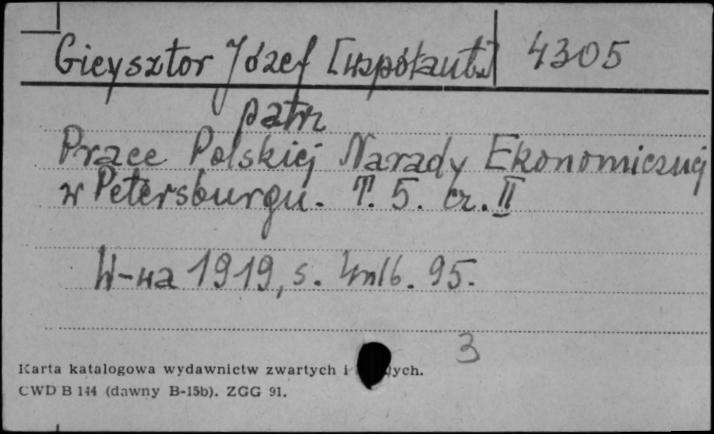 Gieysztor Józef [współaut.] 4305
patrz
Prace Polskiej Narady Ekonomicznej
w Petersburgu. T. 5. cz. II
W-wa 1919, s. 95.
3
Karta katalogowa wydawnictw zwartych i ych.
CWD B 144 (dawny B-15b). ZGG 91.